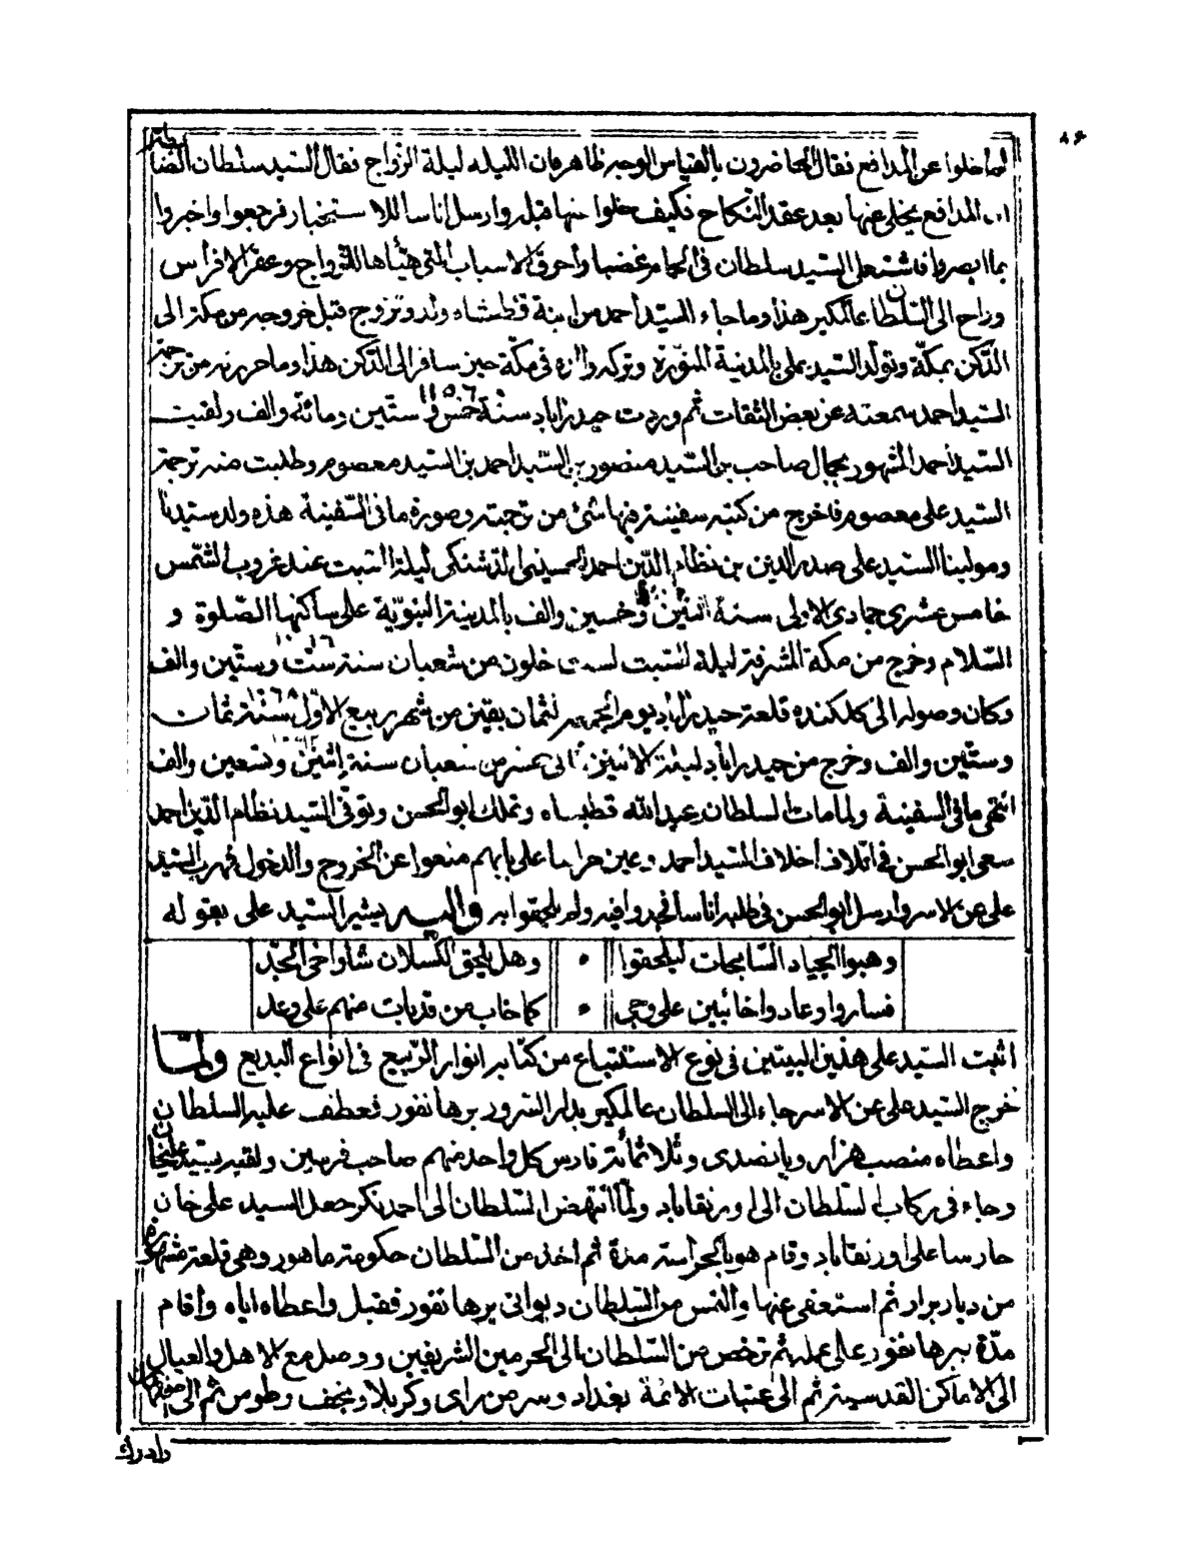 ٨۶
لما خلوا عن المدافع فقال الحاضرون بالقياس الوجه ظاهر فان الليله ليلة الزواج فقال السيد سلطان ايضا
ان المدافع يخلى عنها بعد عقد النكاح فكيف خلوا عنها قبله وارسل اناسا للاستخبار فرجعوا واخبروا
بما ابصروا فاشتعل السيد سلطان في الحمام غضبا واحرق الاسباب التي هيأها للزواج وعقر الافراس
وراح الى السلطان عالمكير هذا وما جاء السيد احمد من ابنة قطبشاه ولد وتزوج قبل خروجه من مكة الى
الدكن بمكة وتولد السيد على بالمدينة المنورة وتركه والده في مكة حين سافر الى الدكن هذا وما حررته من ترجمة
السيد احمد سمعته عن بعض الثقات ثم وردت حيدراباد سنة خمس و ستين ومائة والف ولقيت
السيد احمد المشهور بجمال صاحب بن السيد منصور بن السيد احمد بن السيد معصوم وطلبت منه ترجمة
السيد على معصوم فاخرج من كتبه سفينة فيها شئ من ترجمته وصورة ما في السفينة هذه ولد سيدنا
ومولينا السيد على صدر الدين بن نظام الدين احمد الحسيني الدشتكي ليلة السبت عند غروب الشمس
خامس عشري جمادى الاولى سنة اثنين وخمسين والف بالمدينة النبوية على ساكنها الصلوة و
السلام وخرج من مكة المشرفة ليلة السبت لست خلون من شعبان سنة ست وستين والف
وكان وصوله الى كلكنده قلعة حيدراباد يوم الجمعة لثمان بقين من شهر ربيع الاول سنة ثمان
وستين والف وخرج من حيدراباد ليلة الاثنين ثاني عشر من شعبان سنة اثنين وتسعين والف
انتهى ما في السفينة ولما مات السلطان عبد الله قطبشاه وتملك ابو الحسن وتوفي السيد نظام الدين احمد
سعى ابو الحسن في اتلاف اخلاف السيد احمد وعين حراسا على بابهم منعوا عن الخروج والدخول فهرب السيد
على عن الاسر وارسل ابو الحسن في طلبه اناسا فجدوا فيه ولم يلحقوا به واليه يشير السيد على بقوله
وهبوا الجياد السابحات ليلحقوا • وهل يلحق الكسلان شأو اخى الجد
فساروا وعادوا خائبين على وجى • كما خاب من قد بات منهم على وعد
اثبت السيد على هذين البيتين في نوع الاستتباع من كتابه انوار الربيع في انواع البديع ولما
خرج السيد على عن الاسر جاء الى السلطان عالمكير بدار السرور برهانفور فعطف عليه السلطان
واعطاه منصب هزار وپانصدى وثلاثمائة فارس كل واحد منهم صاحب فرسين ولقبه بسيد عليخان
وجاء في ركاب السلطان الى اورنقاباد ولما انتهض السلطان الى احمد نكر جعل السيد على خان
حارسا على اورنقاباد وقام هو بالحراسة مدة ثم اخذ من السلطان حكومة ماهور وهي قلعة مشهورة
من ديار برار ثم استعفى عنها والتمس من السلطان ديواني برهانفور فقبل واعطاه اياه واقام
مدة ببرهانفور على عمله ثم ترخص من السلطان الى الحرمين الشريفين ووصل مع الاهل والعيال
الى الاماكن القدسية ثم الى عتبات الائمة بغداد وسر من راى وكربلا ونجف وطوس ثم الى اصفهان
وادرك